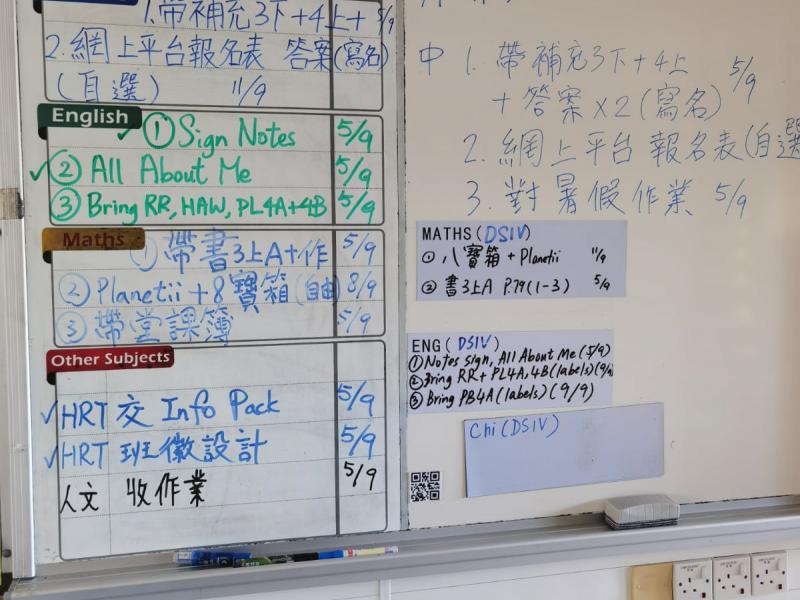 1.帶補充3下+4上+ 5/9
2.網上平台報名表 答案(寫名)
(自選) 11/9
English
✓ ① Sign Notes 5/9
✓ ② All About Me 5/9
③ Bring RR, HAW, PL4A+4B 5/9
Maths
① 帶書3上A+作 5/9
② Planetii+8寶箱(自由) 8/9
③ 帶堂課簿 5/9
Other Subjects
✓ HRT 交 Info Pack 5/9
✓ HRT 班徽設計 5/9
人文 收作業 5/9
中 1. 帶補充3下+4上 5/9
+答案x2(寫名)
2. 網上平台報名表(自選
3. 對暑假作業 5/9
MATHS(DSIV)
① 八寶箱+Planetii 11/9
② 書3上A P.79(1-3) 5/9
ENG (DSIV)
① Notes sign, All About Me (5/9)
② Bring RR+PL4A,4B(labels)(9/9)
③ Bring PB4A(labels)(9/9)
Chi(DSIV)